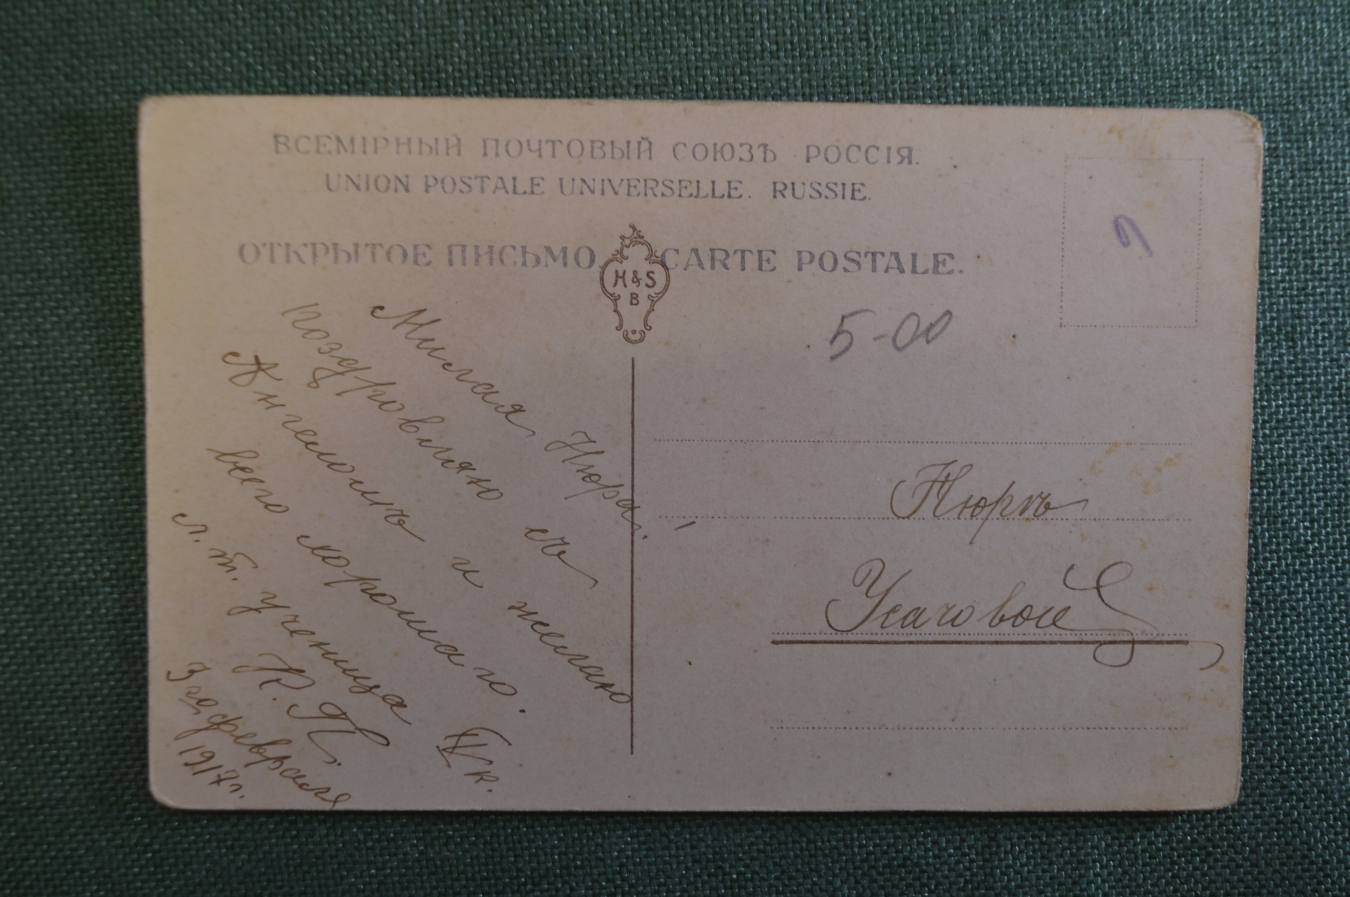 ВСЕМІРНЫЙ ПОЧТОВЫЙ СОЮЗЪ РОССІЯ.
UNION POSTALE UNIVERSELLE. RUSSIE.
ОТКРЫТОЕ ПИСЬМО CARTE POSTALE.
H&S
B
5-00
Милая Нюра!
поздровляю съ
Ангеломъ и желаю
всего хорошаго.
л. т. ученица IV к.
К. П.
3го февраля
1917 г.
Нюрѣ
Усачовой